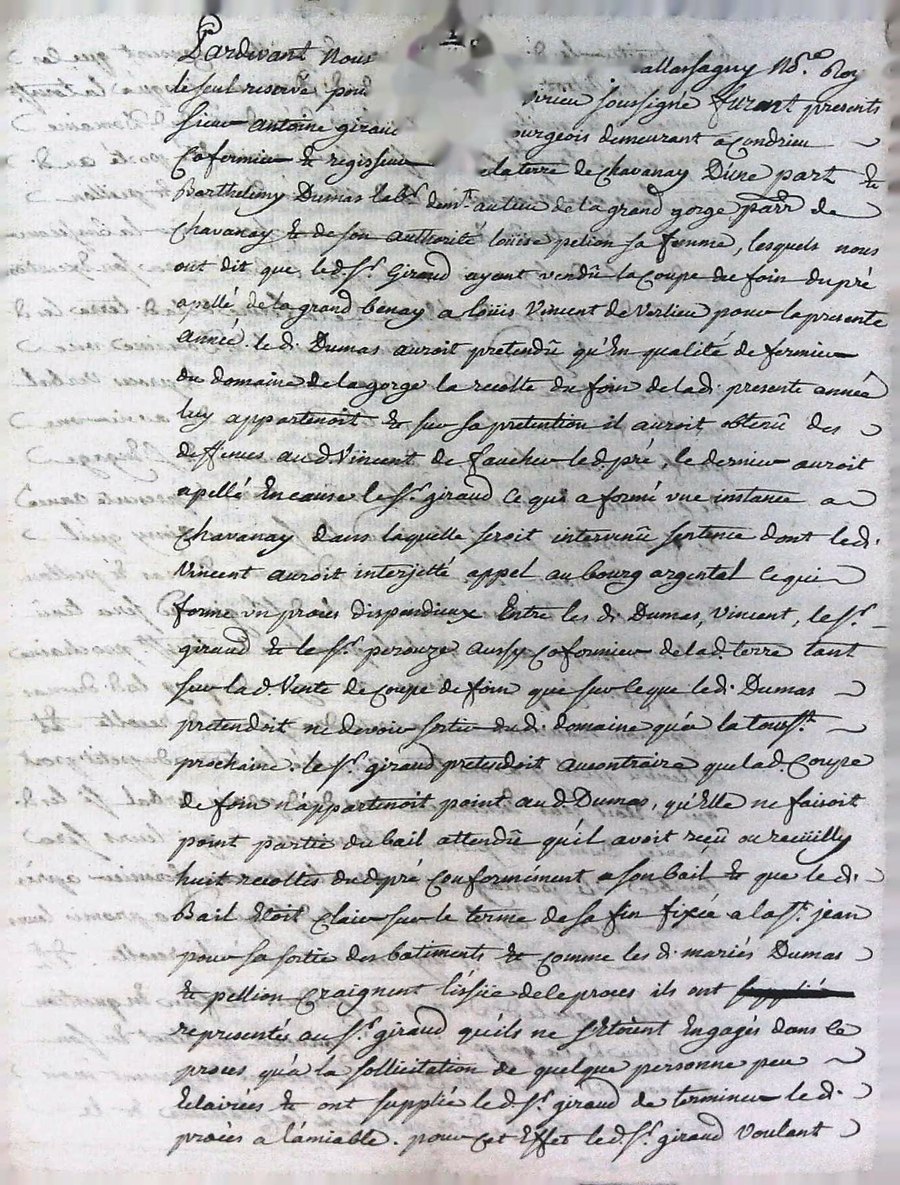 Pardevant Nous allassagny No.re Roy
le seul reservé pour drieu soussigné furent presents
sieur antoine giraud bourgeois demeurant a Condrieu
Cofermier & regisseur de la terre de Chavanay D'une part &
Barthelemy Dumas lab.r dem.t au lieu de la grand gorge parr. de
Chavanay & de son authorité louise pelion sa femme, lesquels nous
ont dit que le d. S.r Giraud ayant vendû la Coupe du foin du pré
apellé de la grand benay a loüis Vincent de Verlieu pour la presente
année. le d. Dumas auroit pretendû qu'En qualité de fermier
du domaine de la gorge la recolte du foin de la d. presente année
luy appartenoit & sur sa pretention il auroit obtenû des
deffences au d. Vincent de faucher le d. pré, le dernier auroit
apellé En cause le S.r giraud Ce qui a formé une instance a
Chavanay dans laquelle seroit intervenû sentence dont le d.
Vincent auroit interjetté appel au bourg argental Ce qui
forme un procès dispendieux Entre les d. Dumas, Vincent, le S.r
giraud & le S.r perouze aussy Cofermier de la d. terre tant
sur la d. Vente de Coupe de foin que sur Ce que le d. Dumas
pretendoit ne devoir sortir du d. domaine qu'a la touss.t
prochaine. le S.r giraud pretendoit au Contraire que la d. Coupe
de foin n'appartenoit point au d. Dumas, qu'Elle ne faisoit
point partie du bail attendû qu'il avoit reçû ou recüilly
huit recoltes du d. pré Conformement a son bail & que le d.
Bail Etoit Clair sur le terme de sa fin fixée a la S.t jean
pour sa sortie des batiments & comme les d. mariés Dumas
& pellion Craignent l'issüe de le proces ils ont
representés au S.r giraud qu'ils ne s'Etoient Engagés dans le
proces qu'a la sollicitation de quelque personne peu
Eclairées & ont supplié le d. S.r giraud de terminer le d.
procès a l'amiable. pour Cet Effet le d. S.r giraud Voulant